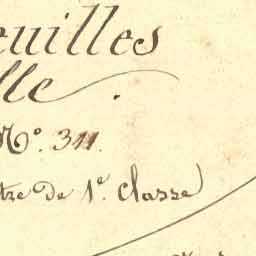 euilles
lle.
N°. 311.
tre de 1e. Classe